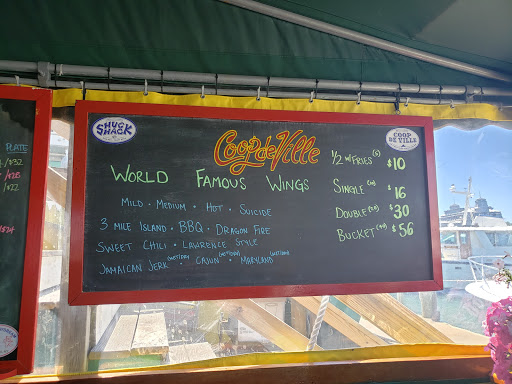 PLATE
SHUCK SHACK
Coop de Ville
COOP DE VILLE
WORLD FAMOUS WINGS
MILD · MEDIUM · HOT · SUICIDE
3 MILE ISLAND · BBQ · DRAGON FIRE
SWEET CHILI · LAWRENCE STYLE
JAMAICAN JERK · CAJUN · MARYLAND
1/2 W/FRIES $10
SINGLE $16
DOUBLE $30
BUCKET $56